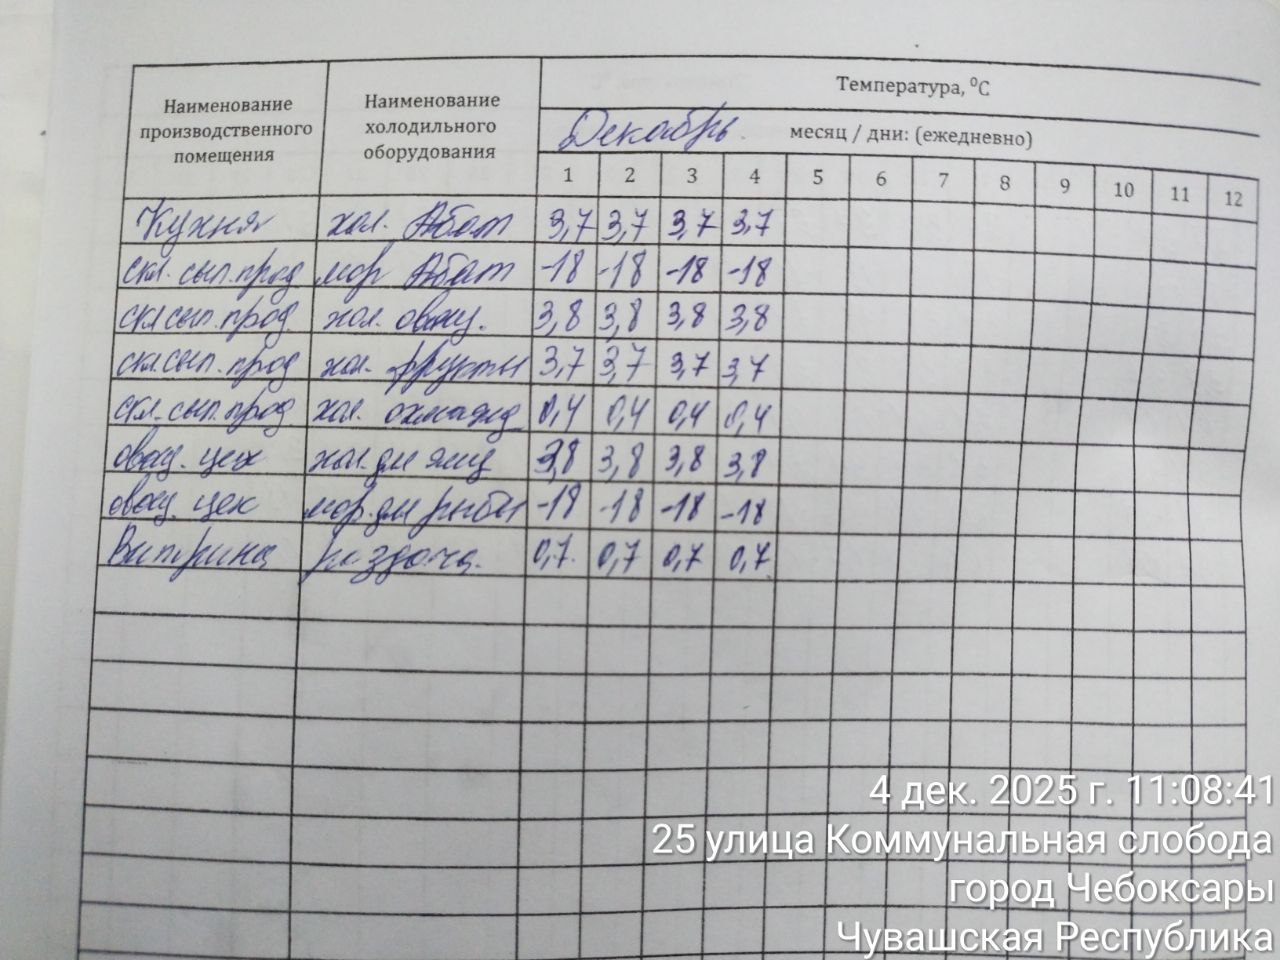 Температура, ⁰С
Наименование производственного помещения
Наименование холодильного оборудования
Декабрь. месяц / дни: (ежедневно)
1 2 3 4 5 6 7 8 9 10 11 12
Кухня хол. Абат 3,7 3,7 3,7 3,7
скл. сып. прод мор Абат -18 -18 -18 -18
скл сып. прод хол. овощ. 3,8 3,8 3,8 3,8
скл. сып. прод хол. фрукты 3,7 3,7 3,7 3,7
скл. сып. прод хол. 0,4 0,4 0,4 0,4
овощ. цех хол. для яиц 3,8 3,8 3,8 3,8
овощ. цех мор. для рыбы -18 -18 -18 -18
Витрина раздача. 0,7. 0,7 0,7 0,7
4 дек. 2025 г. 11:08:41
25 улица Коммунальная слобода
город Чебоксары
Чувашская Республика